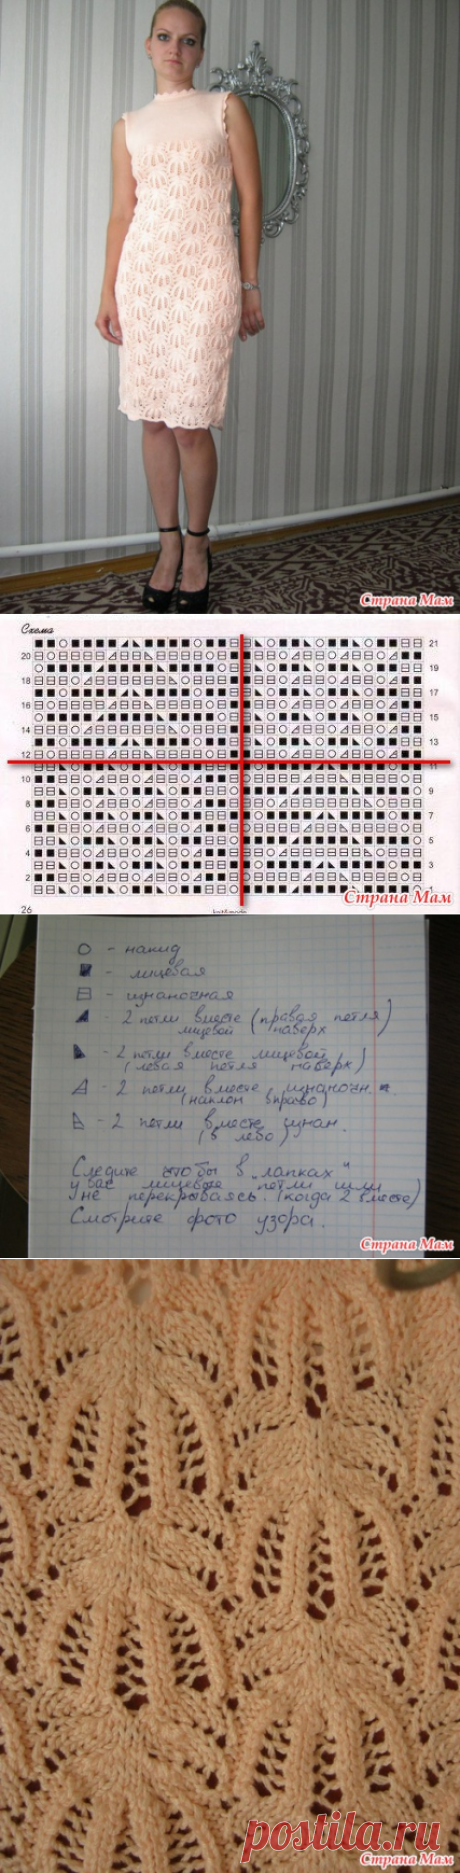 Страна Мам
Схема
21
20
19
18
17
16
15
14
13
12
11
10
9
8
7
6
5
4
3
2
1
26
Страна Мам
- накид
- лицевая
- изнаночная
- 2 петли вместе (правая петля
лицевой наверх)
- 2 петли вместе лицевой
(левая петля наверх)
- 2 петли вместе изнаночн.
(наклон вправо)
- 2 петли вместе изнан.
(влево)
Следите чтобы в "лапках"
у вас лицевые петли шли
не перекрываясь. (когда 2 вместе)
Смотрите фото узора.
Страна Мам
postila.ru
Страна Мам